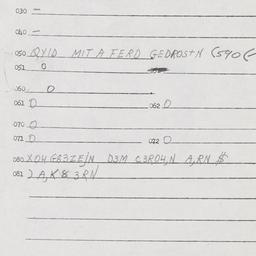 030 –
040 –
050 QYID MIT A FERD GEDROSTN (590(
051 0
060 0
061 0 062 0
070 0
071 0 072 0
080 X04 G83ZE/N D3M C3RO4,N A,RN $
081 ) A,K 8 3 RN